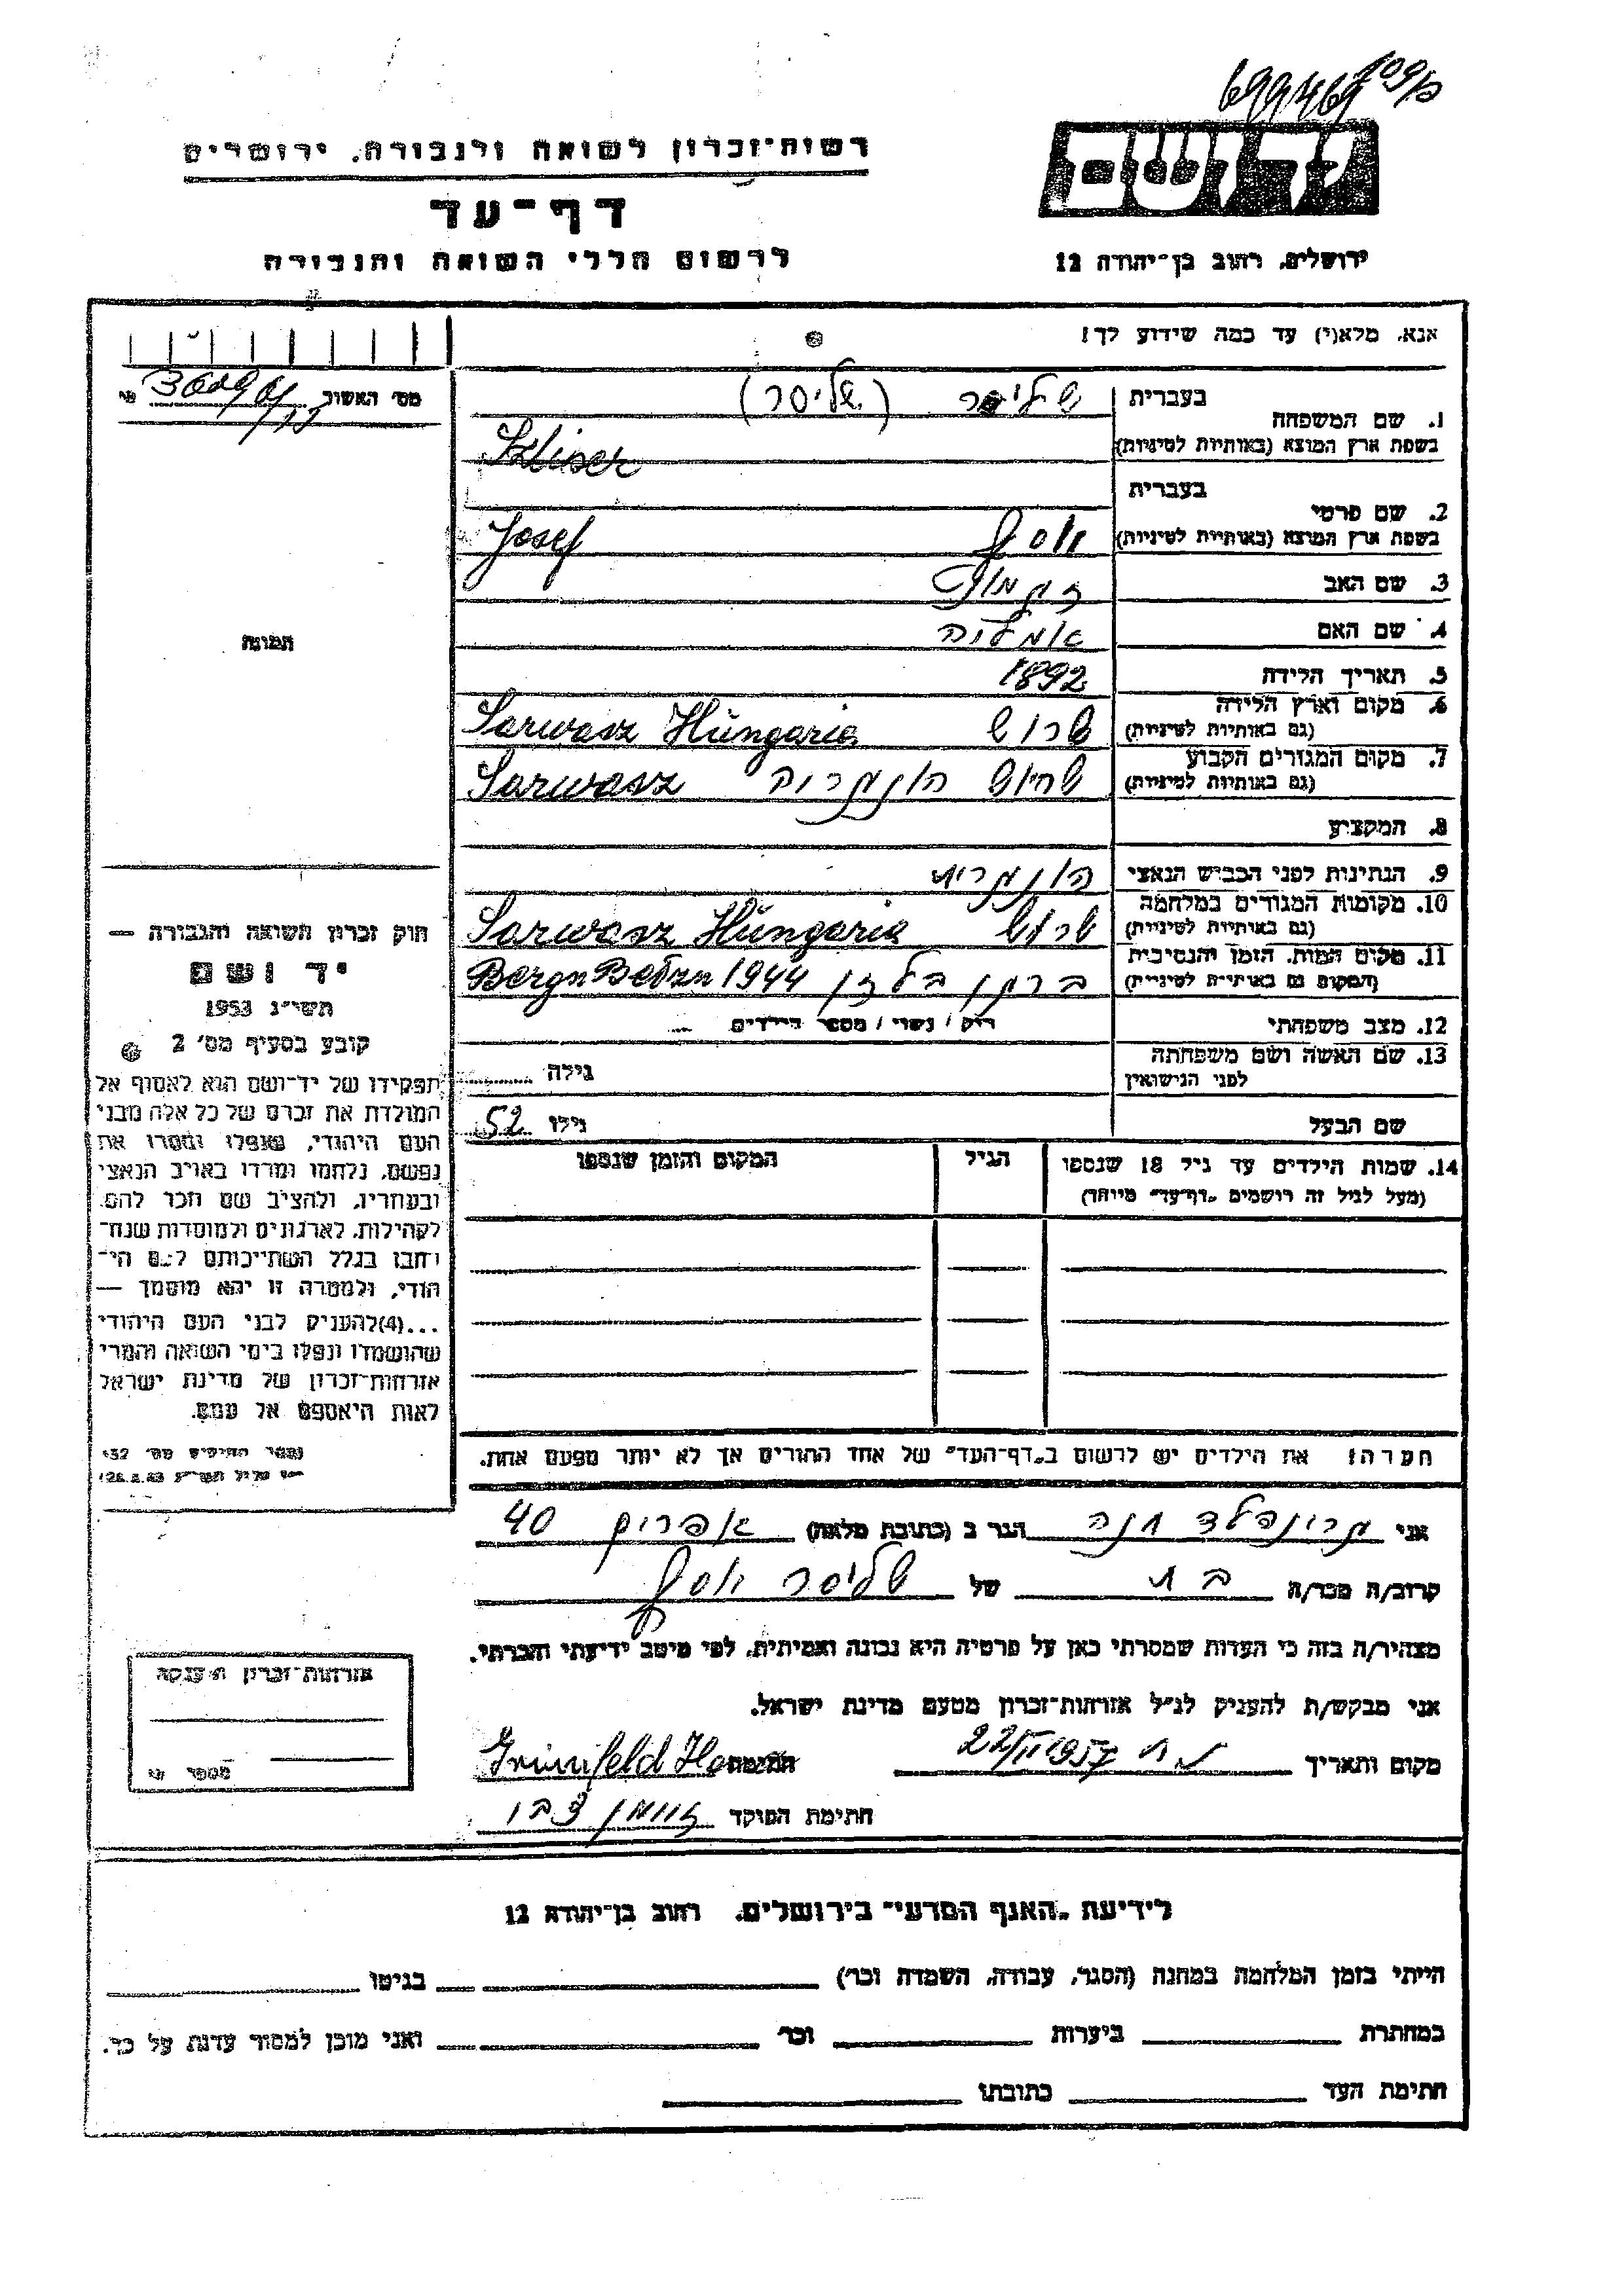 רשות־זכרון לשואה ולגבורה, ירושלים
דף־עד
לרשום חללי השואה והגבורה
יד ושם
ירושלים, רחוב בן־יהודה 12
אנא, מלא(י) עד כמה שידוע לך!
מס׳ האשור
1. שם המשפחה
בעברית
שליסר (שליסר)
בשפת ארץ המוצא (באותיות לטיניות)
Szliser
2. שם פרטי
בעברית
יוסף
בשפת ארץ המוצא (באותיות לטיניות)
Josef
3. שם האב
4. שם האם
5. תאריך הלידה 1892
6. מקום וארץ הלידה
(גם באותיות לטיניות)
Sarwasz Hungaria
7. מקום המגורים הקבוע
(גם באותיות לטיניות)
הונגריה Sarwasz
8. המקצוע
9. הנתינות לפני הכבוש הנאצי הונגרית
10. מקומות המגורים במלחמה
(גם באותיות לטיניות)
Sarwasz Hungaria
11. מקום המות, הזמן והנסיבות
(המקום גם באותיות לטיניות)
ברגן בלזן Bergn Belzn 1944
12. מצב משפחתי רוק / נשוי / מספר הילדים
13. שם האשה ושם משפחתה
לפני הנישואין
גילה
שם הבעל גילו 52
14. שמות הילדים עד גיל 18 שנספו
(מעל לגיל זה רושמים "דף־עד" מיוחד)
הגיל
המקום והזמן שנספו
תמונה
חוק זכרון השואה והגבורה —
יד ושם
תשי״ג 1953
קובע בסעיף מס׳ 2
תפקידו של יד־ושם הוא לאסוף אל
המולדת את זכרם של כל אלה מבני
העם היהודי, שנפלו ומסרו את
נפשם, נלחמו ומרדו באויב הנאצי
ובעוזריו, ולהציב שם וזכר להם,
לקהילות, לארגונים ולמוסדות שנח־
רבו בגלל השתייכותם לעם הי־
הודי, ולמטרה זו יהא מוסמך —
...(4)להעניק לבני העם היהודי
שהושמדו ונפלו בימי השואה והמרי
אזרחות־זכרון של מדינת ישראל
לאות היאספם אל עמם.
הערה! את הילדים יש לרשום ב"דף־העד" של אחד ההורים אך לא יותר מפעם אחת.
אני גרינפלד חנה הגר ב (כתובת מלאה) אפרים 40
קרוב/ה מכר/ה בת של שליסר יוסף
מצהיר/ה בזה כי העדות שמסרתי כאן על פרטיה היא נכונה ואמיתית, לפי מיטב ידיעתי והכרתי.
אני מבקש/ת להעניק לנ״ל אזרחות־זכרון מטעם מדינת ישראל.
מקום ותאריך 22/II 1957 חתימה Grünfeld Hana
חתימת הפוקד
אזרחות־זכרון הוענקה
מספר
לידיעת "האגף המדעי" בירושלים, רחוב בן־יהודה 12
הייתי בזמן המלחמה במחנה (הסגר, עבודה, השמדה וכו׳) בגיטו
במחתרת ביערות וכו׳ ואני מוכן למסור עדות על כך.
חתימת העד כתובתו